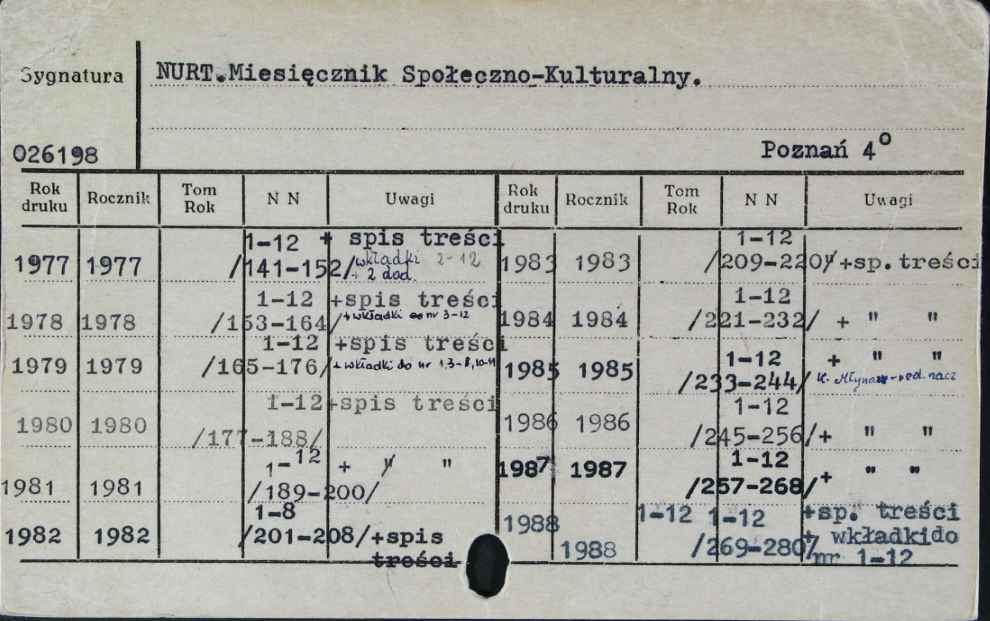 Sygnatura NURT.Miesięcznik Społeczno-Kulturalny.
026198 Poznań 4°
Rok druku Rocznik Tom Rok N N Uwagi Rok druku Rocznik Tom Rok N N Uwagi
1-12 + spis treści
1977 1977 /141-152/ wkładki 2-12
+ 2 dod.
1-12 +spis treści
1978 1978 /153-164/ +wkładki nr 3-12
1-12 +spis treści
1979 1979 /165-176/ +wkładki do nr 1.3-8,10-11
1-12 +spis treści
1980 1980 /177-188/
1-12 + " "
1981 1981 /189-200/
1-8
1982 1982 /201-208/+spis
treści
1-12
1983 1983 /209-220/ +sp.treści
1-12
1984 1984 /221-232/ + " "
1-12 + " "
1985 1985 /233-244/
1-12
1986 1986 /245-256/+ " "
1-12
1987 1987 /257-268/+ " "
1988 1-12 1-12 +sp. treści
1988 /269-280/ + wkładkido
nr 1-12